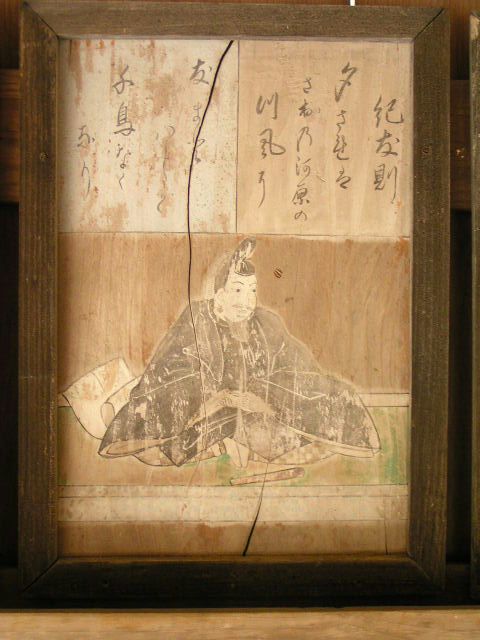 紀友則
夕されは
さほ乃河原の
川風に
友まと
千鳥なく
なり